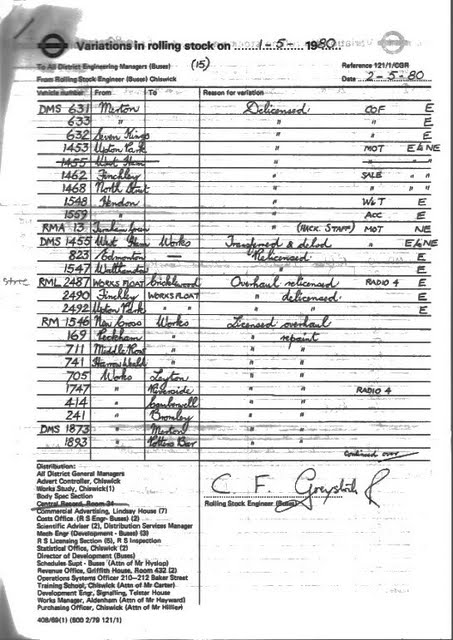 Variations in rolling stock on 1-5-1980
To All District Engineering Managers (Buses) (15) Reference 121/1/CGR
From Rolling Stock Engineer (Buses) Chiswick Date 2-5-80
Vehicle number From To Reason for variation
DMS 631 Merton Delicensed COF E
633 " " " E
632 Seven Kings " " E
1453 Upton Park " MOT E&NE
1455 West Ham " " "
1462 Finchley " SALE " "
1468 North Street " " " "
1548 Hendon " W&T E
1559 " " ACC E
RMA 13 Turnham Green " (ACK. STAFF) MOT NE
DMS 1455 West Ham Works Transferred & delcd " E&NE
823 Edmonton — Relicensed E
1547 Walthamstow " E
Store RML 2487 WORKS FLOAT Cricklewood Overhaul relicensed RADIO 4 E
2490 Finchley WORKS FLOAT " delicensed E
2492 Upton Park " " " " E
RM 1546 New Cross Works Licensed overhaul
169 Peckham " " repaint
711 Middle Row " " "
741 Harrow Weald " " "
705 Works Leyton " "
1747 " Riverside " " RADIO 4
414 " Camberwell " "
241 " Bromley " "
DMS 1873 " Merton " "
1893 " Potters Bar " "
Continued over
Distribution:
All District General Managers
Advert Controller, Chiswick
Works Study, Chiswick(1)
Body Spec Section
Central Record, Room 34
Commercial Advertising, Lindsay House (7)
Costs Office. (R S Engr- Buses) (2)
Scientific Adviser (2), Distribution Services Manager
Mech Engr (Development - Buses) (3)
R S Licensing Section (5), R S Inspection
Statistical Office, Chiswick (2)
Director of Development (Buses)
Schedules Supt - Buses (Attn of Mr Hyslop)
Revenue Office, Griffith House, Room 432 (2)
Operations Systems Officer 210–212 Baker Street
Training School, Chiswick (Attn of Mr Carter)
Development Engr, Signalling, Telstar House
Works Manager, Aldenham (Attn of Mr Hayward)
Purchasing Officer, Chiswick (Attn of Mr Hillier)
C. F.
Rolling Stock Engineer (Buses)
408/69(1) (600 2/79 121/1)